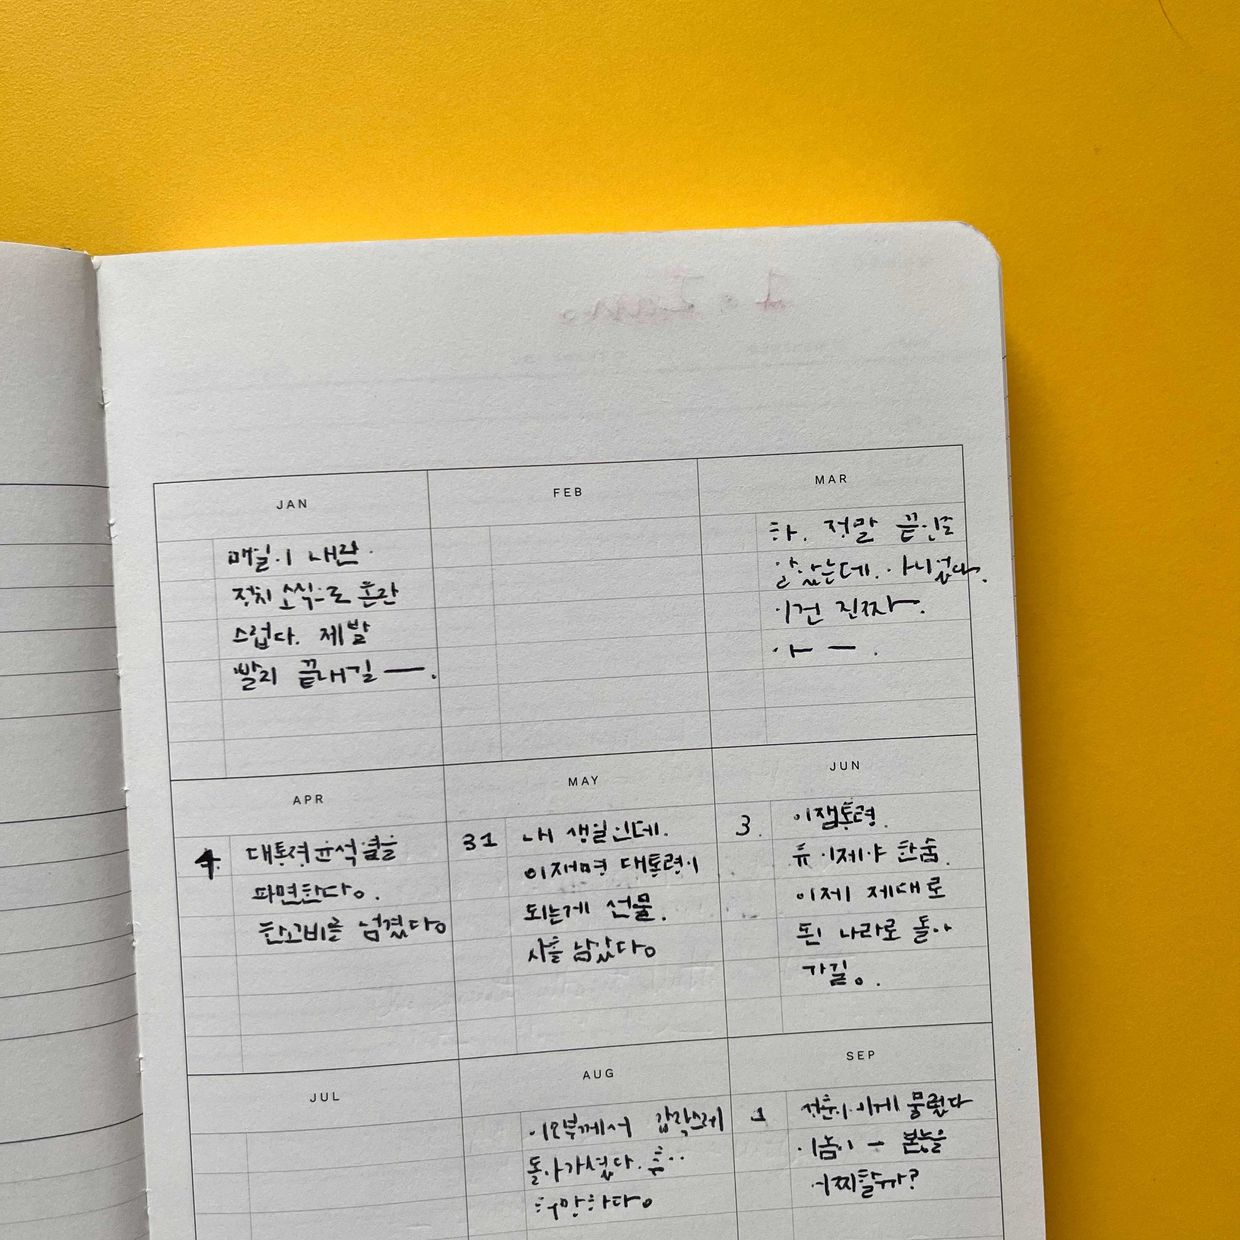 JAN
매일이 내란.
정치 소식으로 혼란
스럽다. 제발
빨리 끝내길 ㅡ.
FEB
MAR
하. 정말 끝인줄
알았는데. 아니었다.
이건 진짜.
아 ㅡ.
APR
4. 대통령 윤석열을
파면한다。
한고비를 넘겼다。
MAY
31 내 생일인데.
이재명 대통령이
되는게 선물.
사흘 남았다。
JUN
3. 이잼통령.
휴 이제야 한숨.
이제 제대로
된 나라로 돌아
가길。.
JUL
AUG
이모부께서 갑작스레
돌아가셨다. 흠..
허망하다。
SEP
1 이게 물렸다
이놈이 ㅡ 본능을
어찌할까?